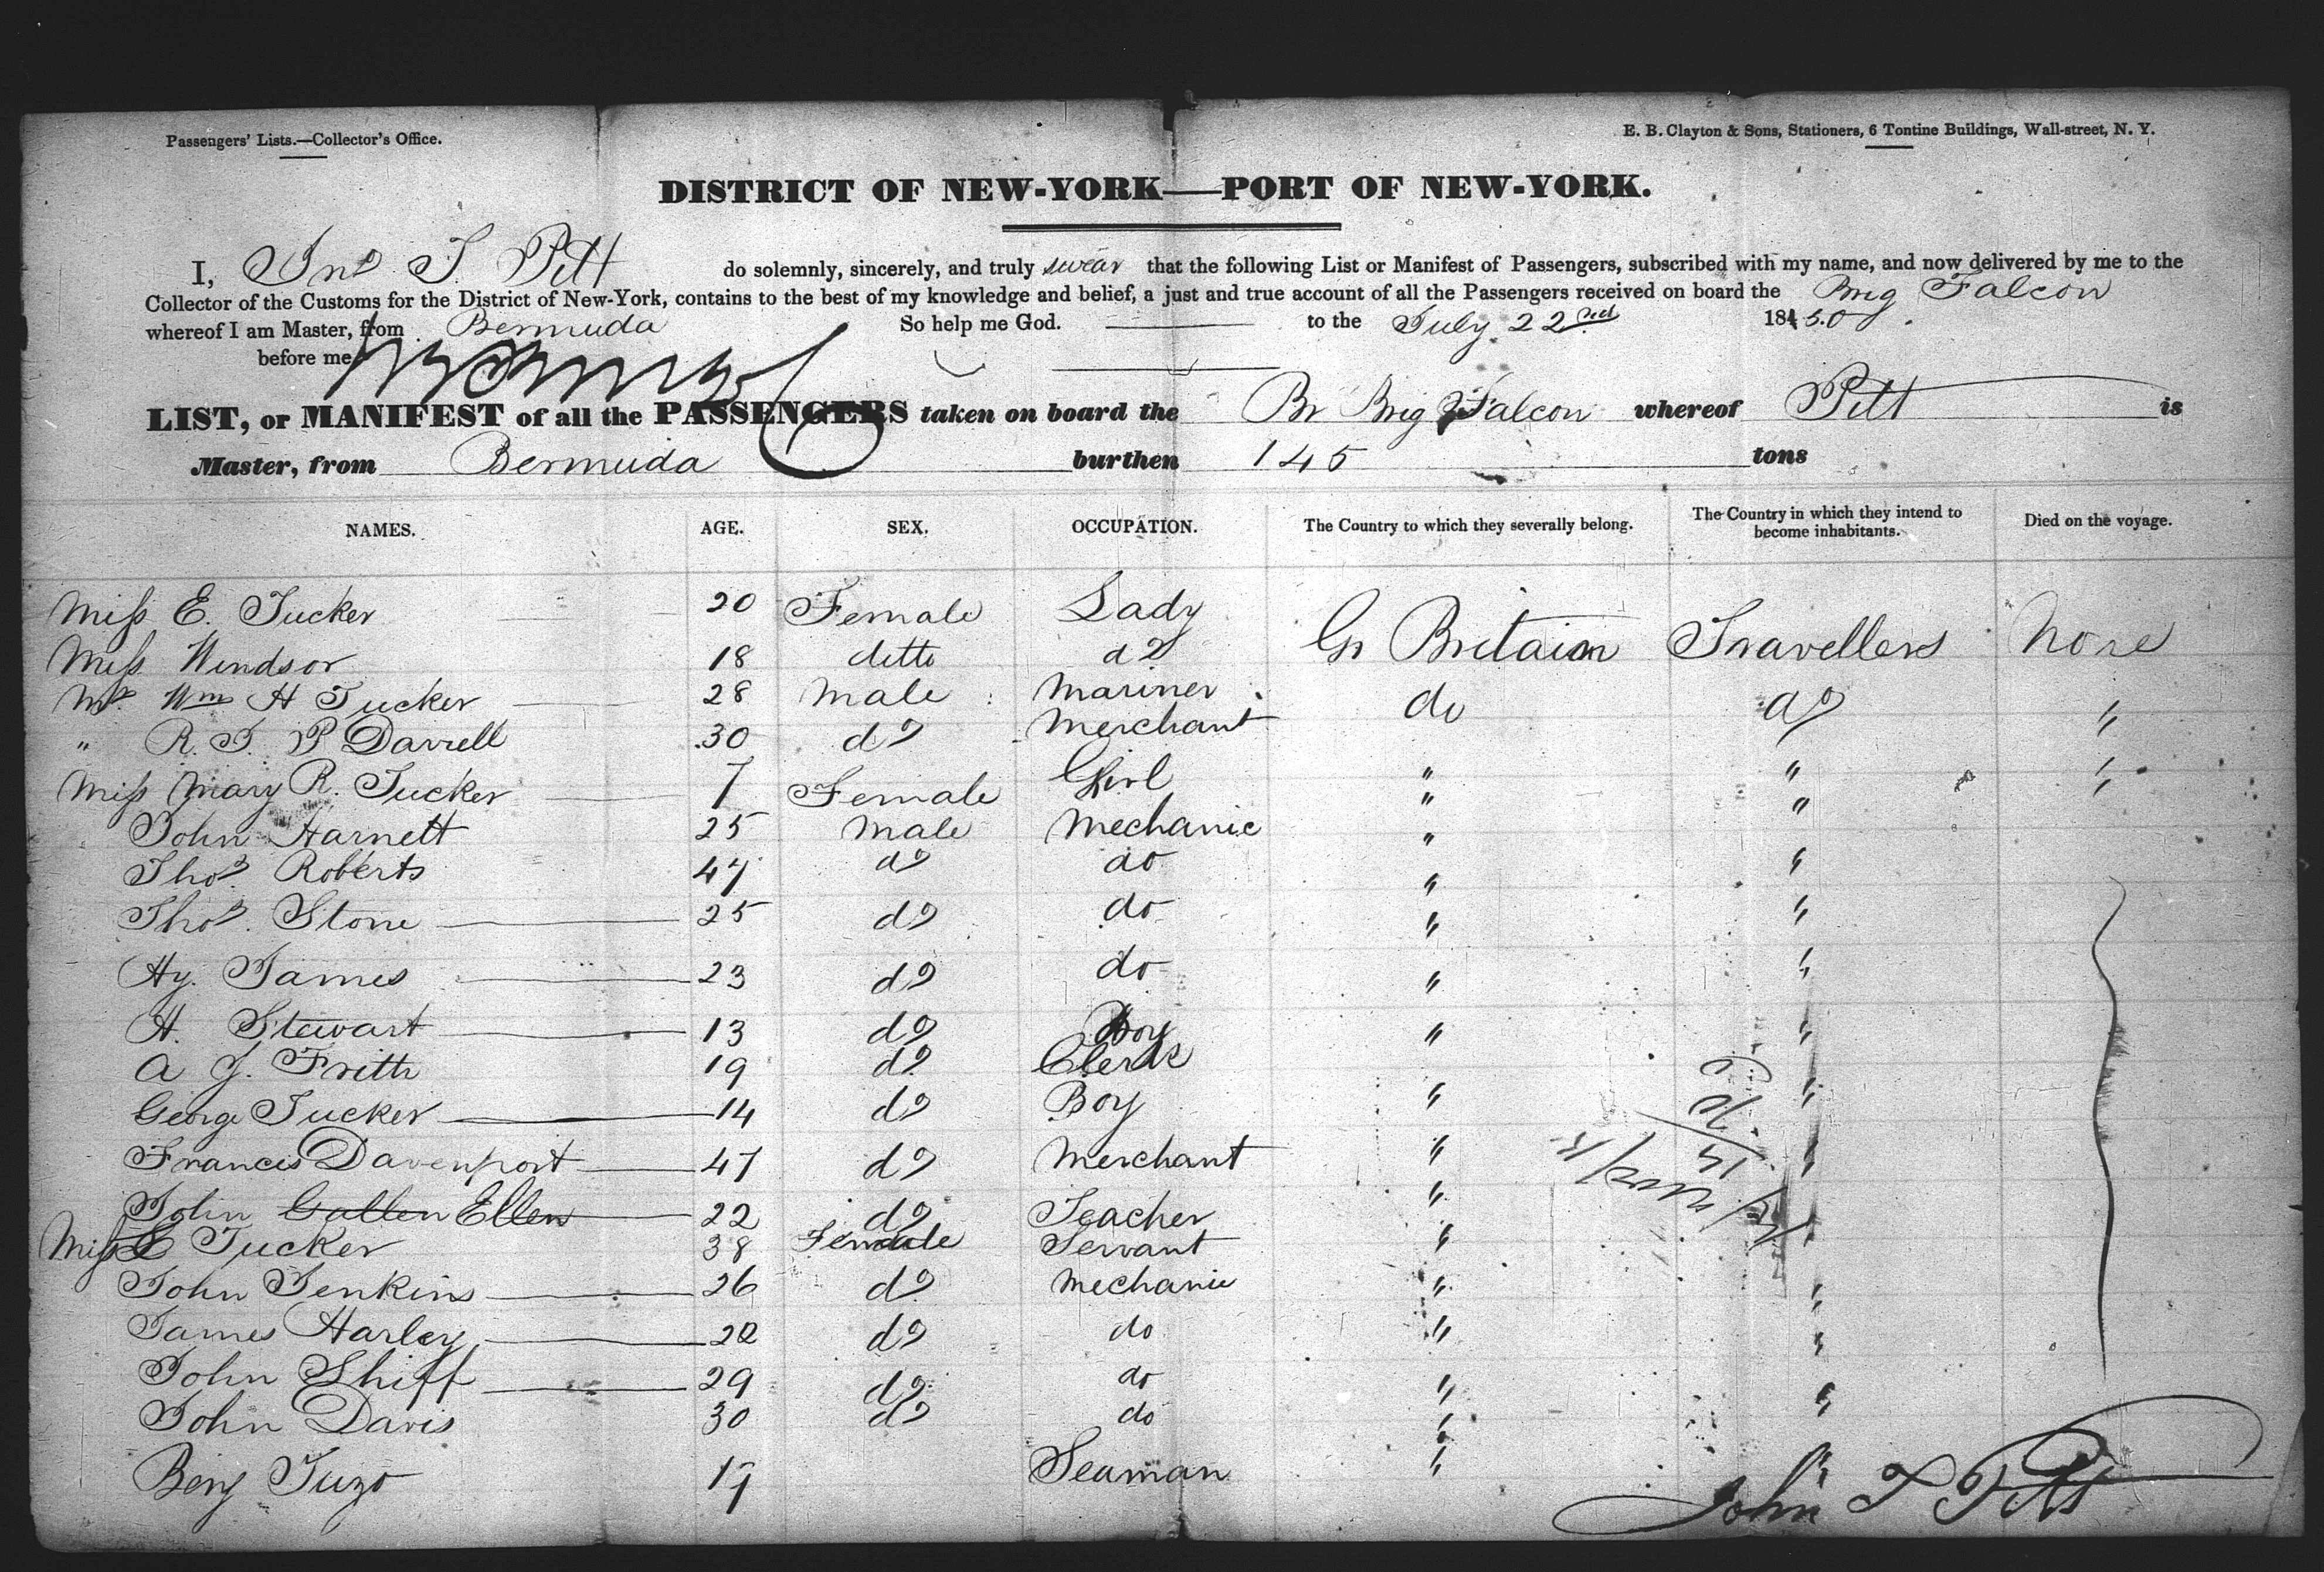 Passengers' Lists.—Collector's Office.
E. B. Clayton & Sons, Stationers, 6 Tontine Buildings, Wall-street, N. Y.
DISTRICT OF NEW-YORK—PORT OF NEW-YORK.
I, Jno T. Pitt do solemnly, sincerely, and truly swear that the following List or Manifest of Passengers, subscribed with my name, and now delivered by me to the
Collector of the Customs for the District of New-York, contains to the best of my knowledge and belief, a just and true account of all the Passengers received on board the Brig Falcon
whereof I am Master, from Bermuda So help me God. to the July 22nd 1850.
before me
LIST, or MANIFEST of all the PASSENGERS taken on board the Br Brig Falcon whereof Pitt is
Master, from Bermuda burthen 145 tons
NAMES. AGE. SEX. OCCUPATION. The Country to which they severally belong. The Country in which they intend to become inhabitants. Died on the voyage.
Miss E. Tucker 20 Female Lady
Miss Windsor 18 ditto do Gr Britain Travellers None
Mr Wm H Tucker 28 Male Mariner do do "
" R. T. P Darrell 30 do Merchant
Miss Mary R. Tucker 7 Female Girl " " "
John Harnett 25 Male Mechanic " "
Thos. Roberts 47 do do " "
Thos. Stone 25 do do " "
Hy. James 23 do do " "
H. Stewart 13 do Boy " "
A J. Frith 19 do Clerk
George Tucker 14 do Boy " "
Francis Davenport 47 do Merchant " "
John Gallen Ellen 22 do Teacher "
Miss E Tucker 38 Female Servant "
John Jenkins 26 do Mechanic " "
James Harley 22 do do " "
John Shiff 29 do do " "
John Davis 30 do do "
Benj Tuzo 17 Seaman " "
John T Pitt